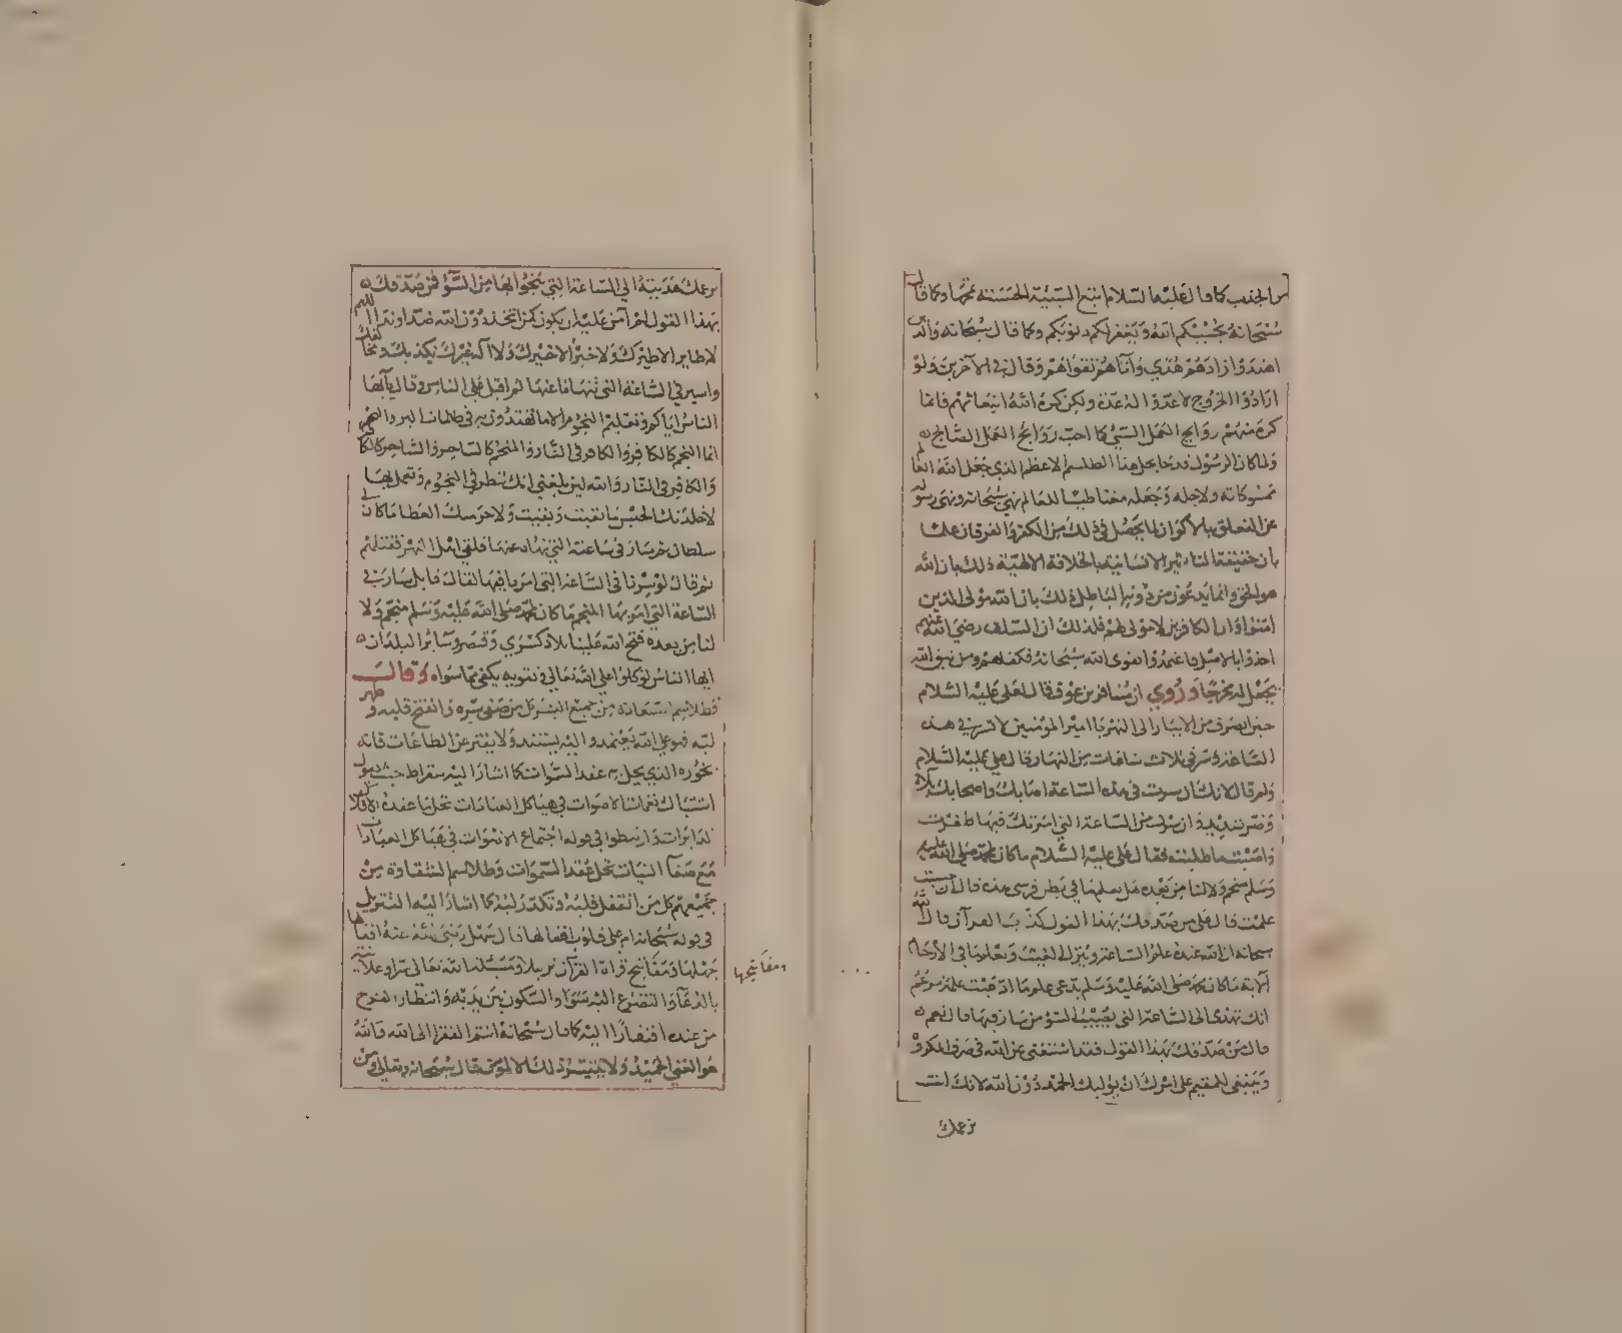 من الجذب كما قال عليه السلام اتبع السيئة الحسنة تمحها وكما قال
سبحانه يحببكم الله ويغفر لكم ذنوبكم وكما قال سبحانه والذين
اهتدوا زادهم هدي وآتاهم تقواهم وقال في الآخرين ولو
ارادوا الخروج لاعدوا له عدة ولكن كره الله انبعاثهم فانما
كره منهم روايح العمل السيئ كما احب روايح العمل الصالح
ولما كان الرسول قد جا بحل هذا الطلسم الاعظم الذي جعل الله
ولاجله وجعله مغناطيسا للعالم نهي سبحانه ونهى رسوله
عن التعلق بالاكوان لما يحصل في ذلك من الكفر والفرقان علما
بان حقيقة التاثير الانسانية بالخلافة الالهية ذلك بان الله
هو الحق وانما يدعون من دونه الباطل ذلك بان الله مولى الذين
امنوا وان الكافرين لا مولى لهم فلذلك ان السلف رضي الله عنهم
اخذوا بالاصل فاعتمدوا تقوى الله سبحانه فكفاهم ومن يتق الله
يجعل له مخرجا وروي ان مسافر بن عوف قال لعلي عليه السلام
حين انصرف من الانبار الى النهر يا امير المؤمنين لا تسر في هذه
الساعة وسر في ثلاث ساعات من النهار قال علي عليه السلام
ولم قال لانك ان سرت في هذه الساعة اصابك واصحابك بلاء
وضر شديد وان سرت في الساعة التي امرتك فيها ظفرت
واصبت ما طلبت فقال علي عليه السلام ما كان لمحمد صلى الله عليه
وسلم منجم ولا لنا من بعده هل تعلم ما في بطن فرسي هذه قال ان حسبت
علمت قال علي من صدقك بهذا القول كذب بالقرآن قال الله
سبحانه ان الله عنده علم الساعة وينزل الغيث ويعلم ما في الارحام
الآية ما كان محمد صلى الله عليه وسلم يدعى علم ما ادعيت علمه تزعم
انك تهدى الى الساعة التي يصيب السؤ من سار فيها قال نعم
قال من صدقك بهذا القول فقد استغنى عن الله في صرف المكروه
وينبغي للمقيم على امرك ان يوليك الحمد دون الله لانك انت
تزعمك
تزعمك هديته الي الساعة التي ينجوا بها من السؤ فمن صدقك
بهذا القول لم آمن عليه ان يكون كمن اتخذ دون الله ضدا وندا اللهم
لا طاير الا طيرك ولا خير الا خيرك ولا اله غيرك نكذبك ونخالفك
واسير في الساعة التي تنهانا عنها ثم اقبل على الناس وقال يأيها
الناس اياكم وتعلم النجوم الا ما تهتدون به في ظلمات البر والبحر
انما المنجم كالكافر والكافر في النار والمنجم كالساحر والساحر كالكافر
والكافر في النار والله لين بلغني انك تنظر في النجوم وتعمل بها
لاخلدنك الحبس ما بقيت وبقيت ولاحرمنك العطا ما كان لي
سلطان ثم سار في ساعته التي نهاه عنها فلقي اهل النهر فقتلهم
ثم قال لو سرنا في الساعة التي امرنا فيها لقال قايل سار في
الساعة التي امر بها المنجم ما كان لمحمد صلى الله عليه وسلم منجم ولا
لنا من بعده فتح الله علينا بلاد كسرى وقيصر وسائر البلدان
ايها الناس توكلوا علي الله تعالي يكفي مما سواه وقال
من جميع البشر كل من صفى سره وانفتح قلبه وطهر
لبه فهو علي الله يعتمد واليه يستند ولا يفتر عن الطاعات فانه
بخوره الذي يحل به عقد السموات كما اشار اليه سقراط حيث يقول
اشتباك نغمات الاصوات في هياكل العبادات تحل ما عقدته الافلاك
الدايرات وارسطوا في قوله اجتماع الاصوات في هياكل العبادات
مع صفآ النيات تحل عقد السموات وطلاسم الشقاوة من
جميعهم كل من انقفل قلبه وتكدر لبه كما اشار اليه التنزيل
في قوله سبحانه ام على قلوب اقفالها قال سهل رضى الله عنه اقفالها
جهلها ومفاتيح قراة القرآن الله تعالى سرا وعلانية
ومفاتيحها
بالدعآ والتضرع اليه والسكون بين يديه وانتظار الفرج
من عنده افتقارا اليه كما قال سبحانه انتم الفقرا الى الله والله
هو الغني الحميد ولا يتيسر ذلك الا لمؤمن قال سبحانه وتعالى ومن